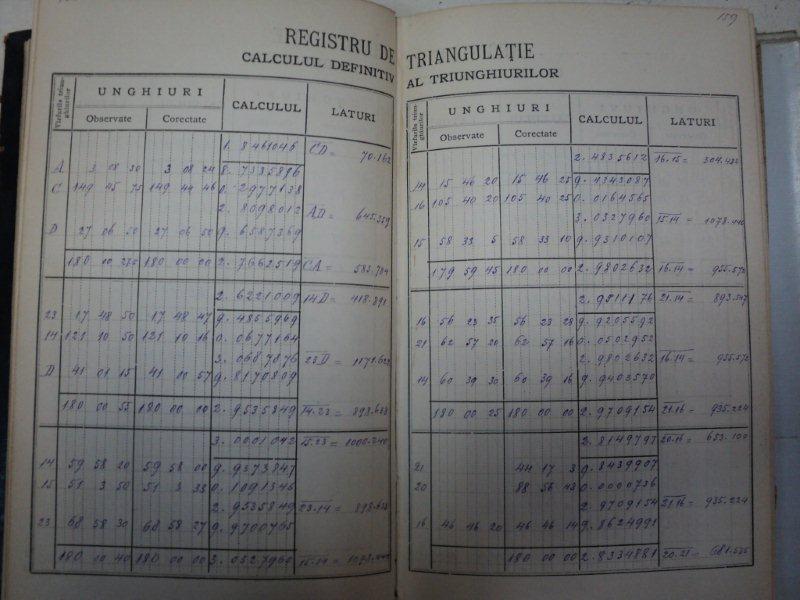 REGISTRU DE
CALCULUL DEFINITIV
Vîrfurile triun-ghiurilor UNGHIURI CALCULUL LATURI
Observate Corectate
1. 8461045 CD = 70.162
A 3 08 30 3 08 24 8. 7335896
C 149 45 75 149 44 46 0. 2977138
2. 8098012 AD = 645.359
D 27 06 50 27 06 50 9. 6587369
180 00 180 00 00 2. 7662519 CA = 583.784
2. 6221009 14D = 418.891
23 17 48 50 17 48 47 9. 4855969
14 121 10 50 121 10 16 0. 0677164
3. 0687876 23D =
D 41 01 15 41 00 57 9. 8170809
180 00 55 180 00 00 2. 9535849 14.23 = 898.638
3. 0001042 15.23 = 1000.240
14 59 58 20 59 58 00 9. 9373847
15 51 3 50 51 3 33 0. 1091346
2. 9535849 23.14 = 898.638
23 68 58 30 68 58 27 9. 9700765
180 10 40 180 00 00 3. 0327960 15.14 =
159
TRIANGULAȚIE
AL TRIUNGHIURILOR
Vîrfurile triun-ghiurilor UNGHIURI CALCULUL LATURI
Observate Corectate
2. 4835612 16.15 =
14 15 46 20 15 46 25 9. 4343087
16 105 40 20 105 40 25 0. 0164565
3. 0327960 15.14 = 1078.440
15 58 33 5 58 33 10 9. 9310107
179 59 45 180 00 00 2. 9802632 16.14 = 955.572
2. 9811176 21.14 =
16 56 23 35 56 23 28 9. 9205592
21 62 57 20 62 57 16 0. 0502952
2. 9802632 16.14 = 955.572
14 60 39 30 60 39 16 9. 9403570
180 00 25 180 00 00 2. 9709154 21.16 = 935.224
2. 8149797 20.16 = 653.100
21 44 17 3 9. 8439907
20 88 56 43 0. 0000736
2. 9709154 21.16 = 935.224
16 46 46 20 46 46 14 9. 8624991
180 00 00 2. 8334881 20.21 =